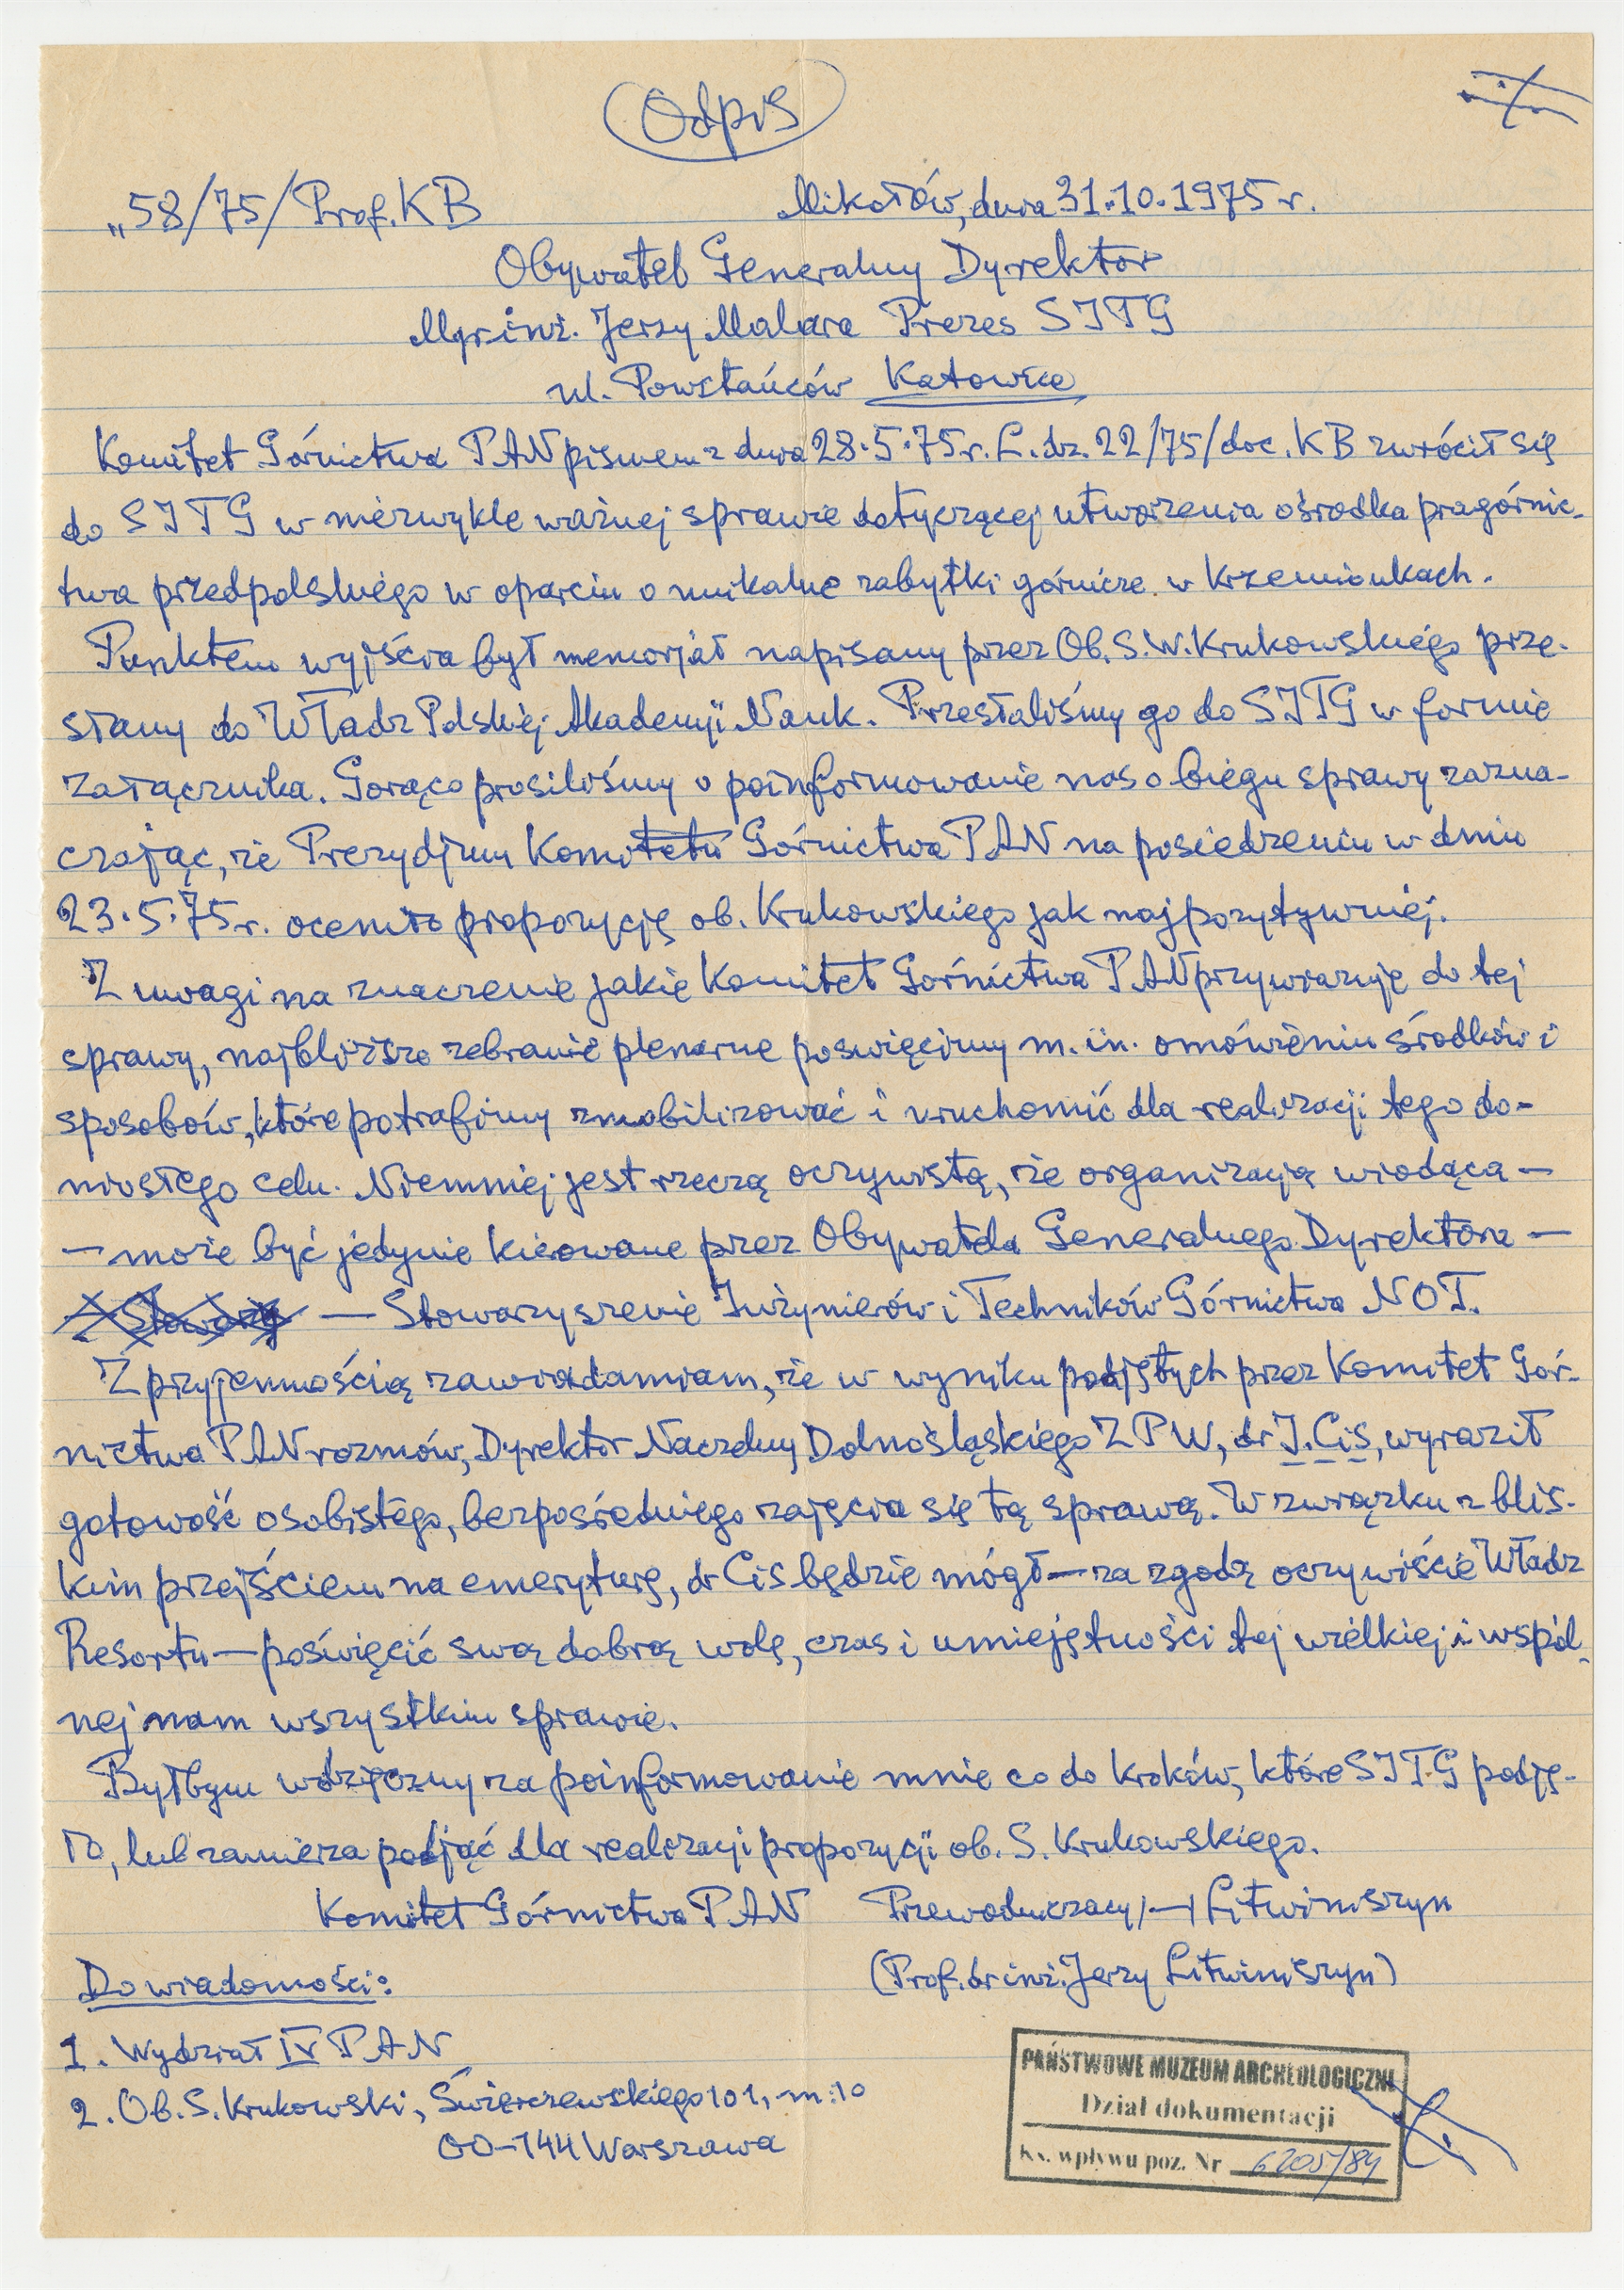 Odpis
„58/75/Prof. KB Mikołów, dnia 31.10.1975 r.
Obywatel Generalny Dyrektor
Mgr. inż. Jerzy Malara Prezes SITG
ul. Powstańców Katowice
Komitet Górnictwa PAN pismem z dnia 28.5.75 r. L.dz. 22/75/doc. KB zwrócił się
do SITG w niezwykle ważnej sprawie dotyczącej utworzenia ośrodka pragórnic-
twa przedpolskiego w oparciu o unikalne zabytki górnicze w Krzemionkach.
Punktem wyjścia był memorjał napisany przez Ob. S. W. Krukowskiego prze-
słany do Władz Polskiej Akademji Nauk. Przesłaliśmy go do SITG w formie
załącznika. Gorąco prosiliśmy o poinformowanie nas o biegu sprawy zazna-
czając, że Prezydjum Komitetu Górnictwa PAN na posiedzeniu w dniu
23.5.75 r. oceniło propozycję ob. Krukowskiego jak najpozytywniej.
Z uwagi na znaczenie jakie Komitet Górnictwa PAN przywiązuje do tej
sprawy, najbliższe zebranie plenarne poswięcimy m. in. omówieniu środków i
sposobów, które potrafimy zmobilizować i uruchomić dla realizacji tego do-
niosłego celu. Niemniej jest rzeczą oczywistą, że organizacją wiodącą —
— może być jedynie kierowane przez Obywatela Generalnego Dyrektora —
— Stowarzyszenie Inżynierów i Techników Górnictwa NOT.
Z przyjemnością zawiadamiam, że w wyniku podjętych przez Komitet Gór-
nictwa PAN rozmów, Dyrektor Naczelny Dolnośląskiego ZPW, dr J. Cis, wyraził
gotowość osobistego, bezpośredniego zajęcia się tą sprawą. W związku z blis-
kim przejściem na emeryturę, dr Cis będzie mógł — za zgodą oczywiście Władz
Resortu — poświęcić swą dobrą wolę, czas i umiejętności tej wielkiej i wspól-
nej nam wszystkim sprawie.
Byłbym wdzięczny za poinformowanie mnie co do kroków, które SITG podję-
ło, lub zamierza podjąć dla realizacji propozycji ob. S. Krukowskiego.
Komitet Górnictwa PAN Przewodniczący /—/ Litwiniszyn
(Prof. dr inż. Jerzy Litwiniszyn)
Do wiadomości:
1. Wydział IV PAN
2. Ob. S. Krukowski, Świerczewskiego 101, m. 10
00-144 Warszawa
PAŃSTWOWE MUZEUM ARCHEOLOGICZNE
Dział dokumentacji
Ks. wpływu poz. Nr 6205/84